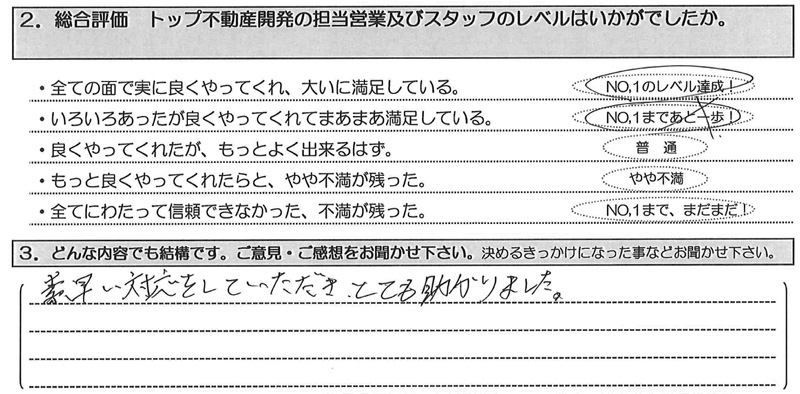 2. 総合評価 トップ不動産開発の担当営業及びスタッフのレベルはいかがでしたか。
・全ての面で実に良くやってくれ、大いに満足している。 NO,1のレベル達成!
・いろいろあったが良くやってくれてまあまあ満足している。 NO,1まであと一歩!
・良くやってくれたが、もっとよく出来るはず。 普 通
・もっと良くやってくれたらと、やや不満が残った。 やや不満
・全てにわたって信頼できなかった、不満が残った。 NO,1まで、まだまだ!
3. どんな内容でも結構です。ご意見・ご感想をお聞かせ下さい。決めるきっかけになった事などお聞かせ下さい。
素早い対応をしていただき、とても助かりました。